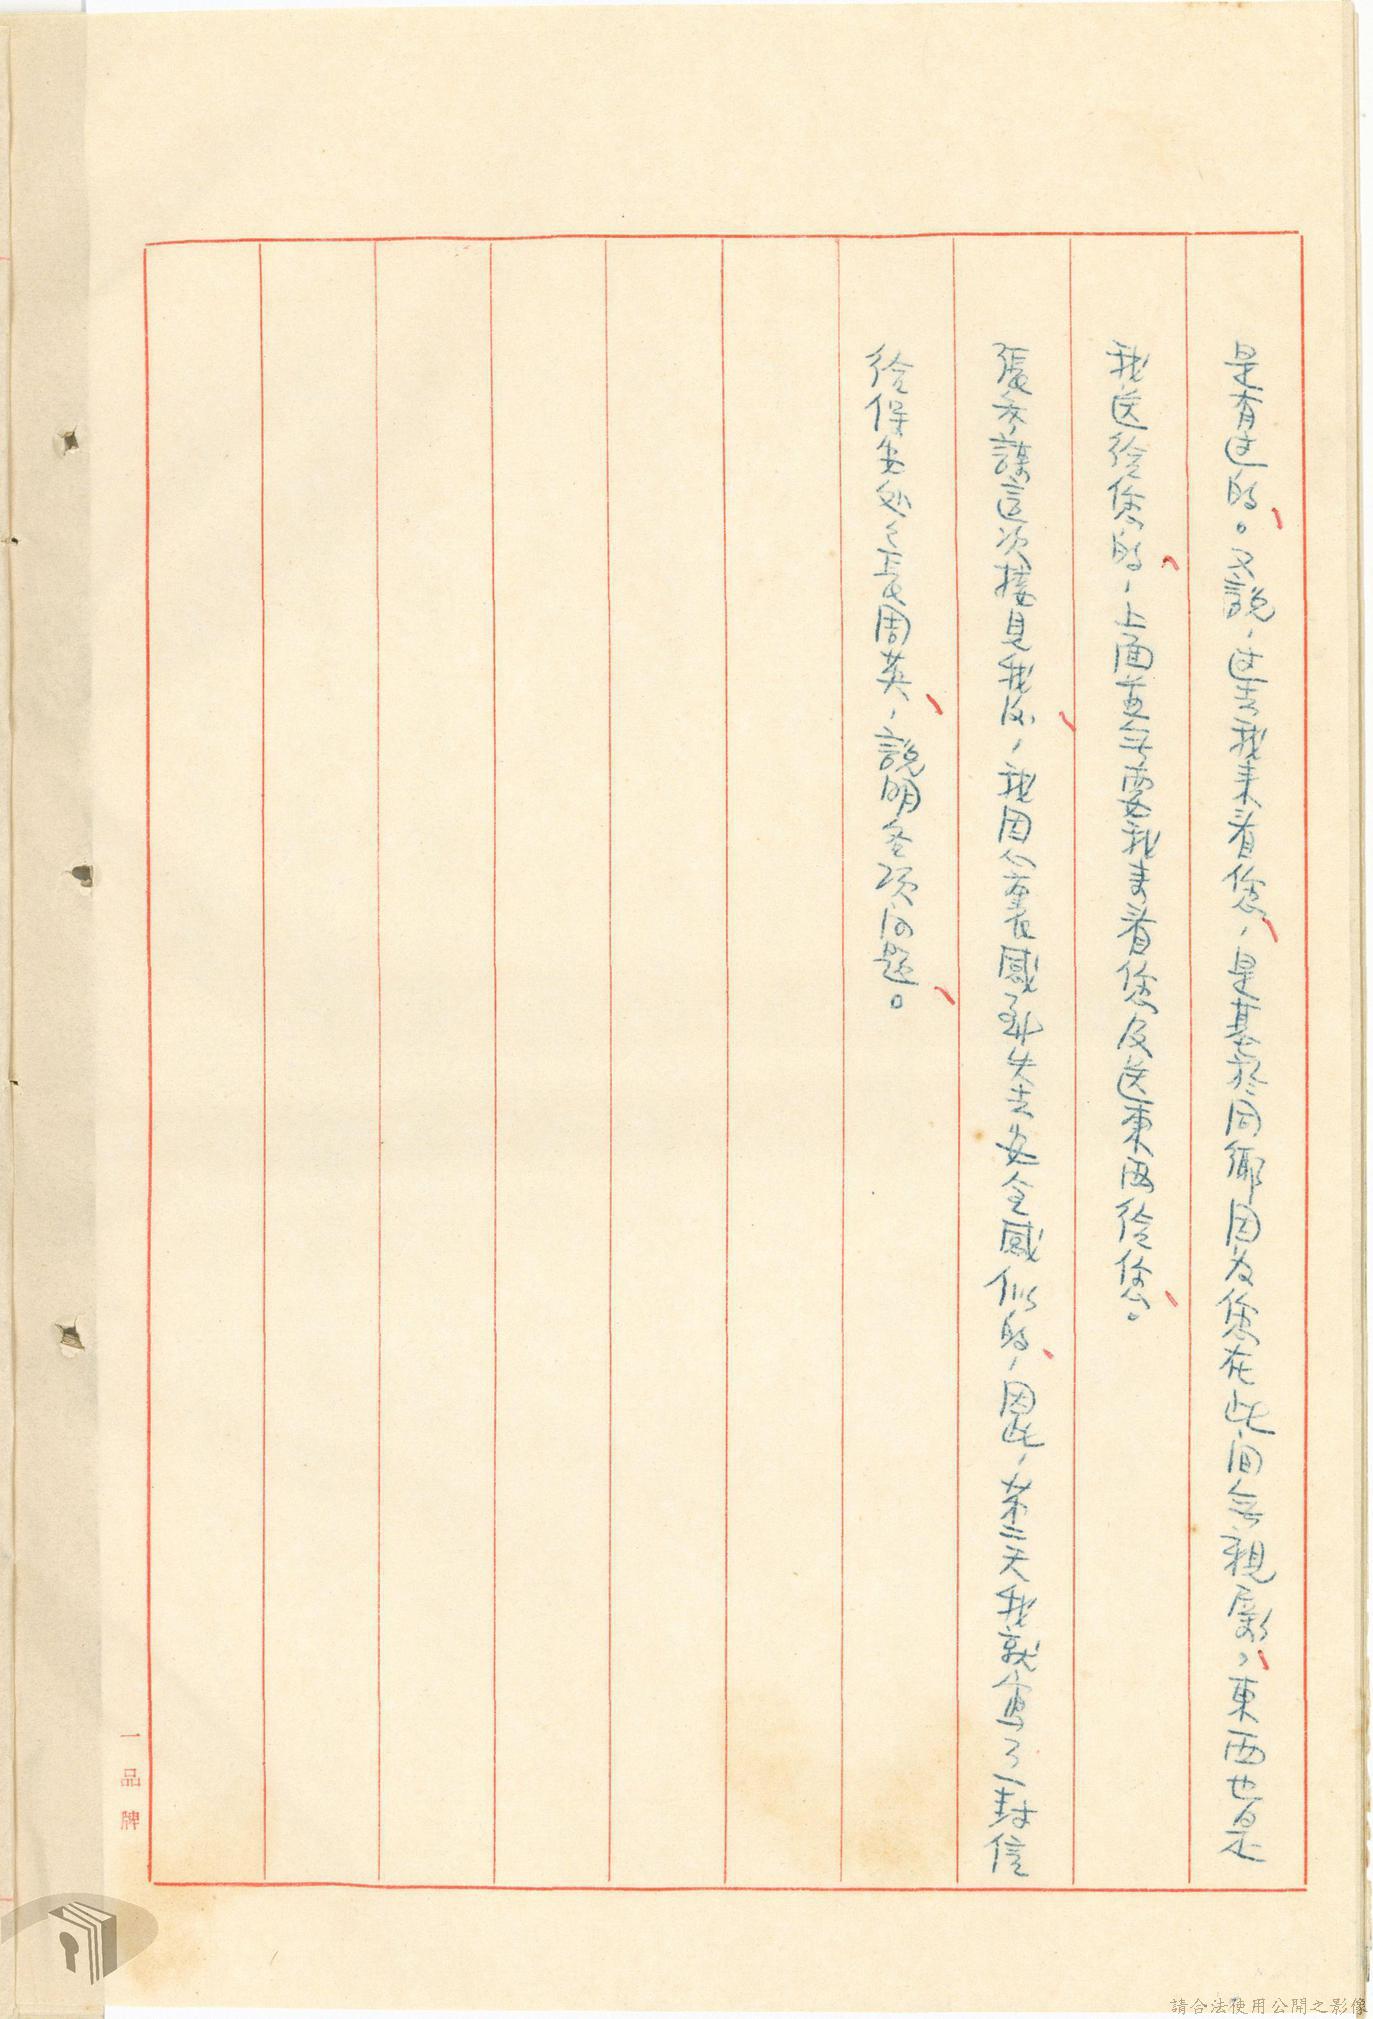 是有过的。又說，过去我来看您，是基於同鄉因为您在此间無親屬，東西也是
我送给您的，上面並無要我来看您及送東西给您。
張參謀這次接見我后，我因心裏感到失去安全感似的，因此，第二天我就寫了一封信
给保安处々長周英，說明各項问题。
一品牌
請合法使用公開之影像